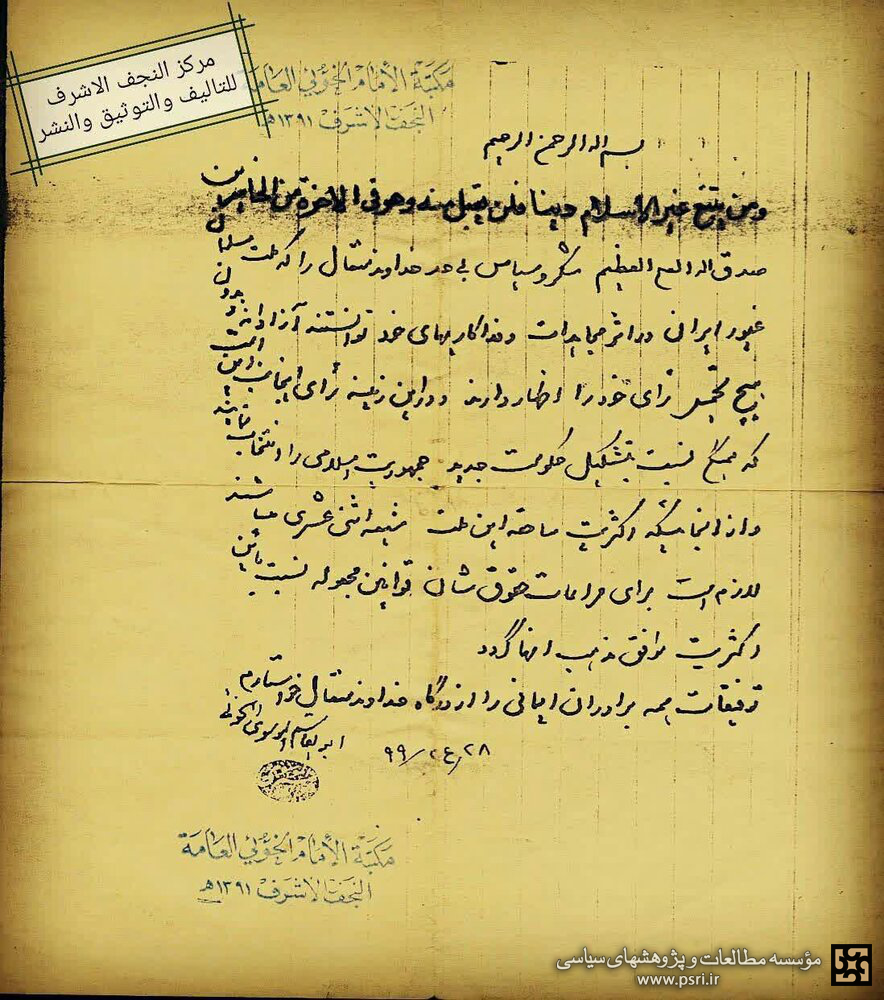 مركز النجف الاشرف
للتاليف والتوثيق والنشر
مكتبة الأمام الخوئي العامة
النجف الاشرف ١٣٩١هـ
بسم الله الرحمن الرحیم
ومن یبتغ غیر الاسلام دینا فلن یقبل منه وهو فی الآخرة من الخاسرین
صدق الله العلی العظیم شکر و سپاس بی حد خداوند متعال را که ملت مسلمان
غیور ایران در اثر مجاهدات و فداکاریهای خود توانستند آزادانه و بدون
هیچ رأی خود را اظهار دارند و در این زمینه رأی اینجانب این است
که همگی نسبت بتشکیل حکومت جدید جمهوریت اسلامی را انتخاب نمایند
و از آنجائیکه اکثریت ساحقه این ملت شیعه اثنی عشری میباشند
لازم است برای مراعات حقوق شان قوانین مجعوله نسبت باین
اکثریت موافق مذهب آنها گردد
توفیقات همه برادران ایمانی را از درگاه خداوند متعال خواستارم
ابوالقاسم الموسوی الخوئی
٢٨/ع٢/٩٩
مكتبة الأمام الخوئي العامة
النجف الاشرف ١٣٩١هـ
مؤسسه مطالعات و پژوهشهای سیاسی
www.psri.ir